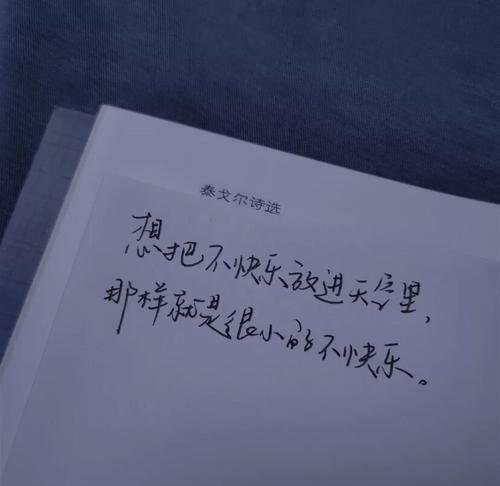 泰戈尔诗选
想把不快乐放进天空里，
那样就是很小的不快乐。